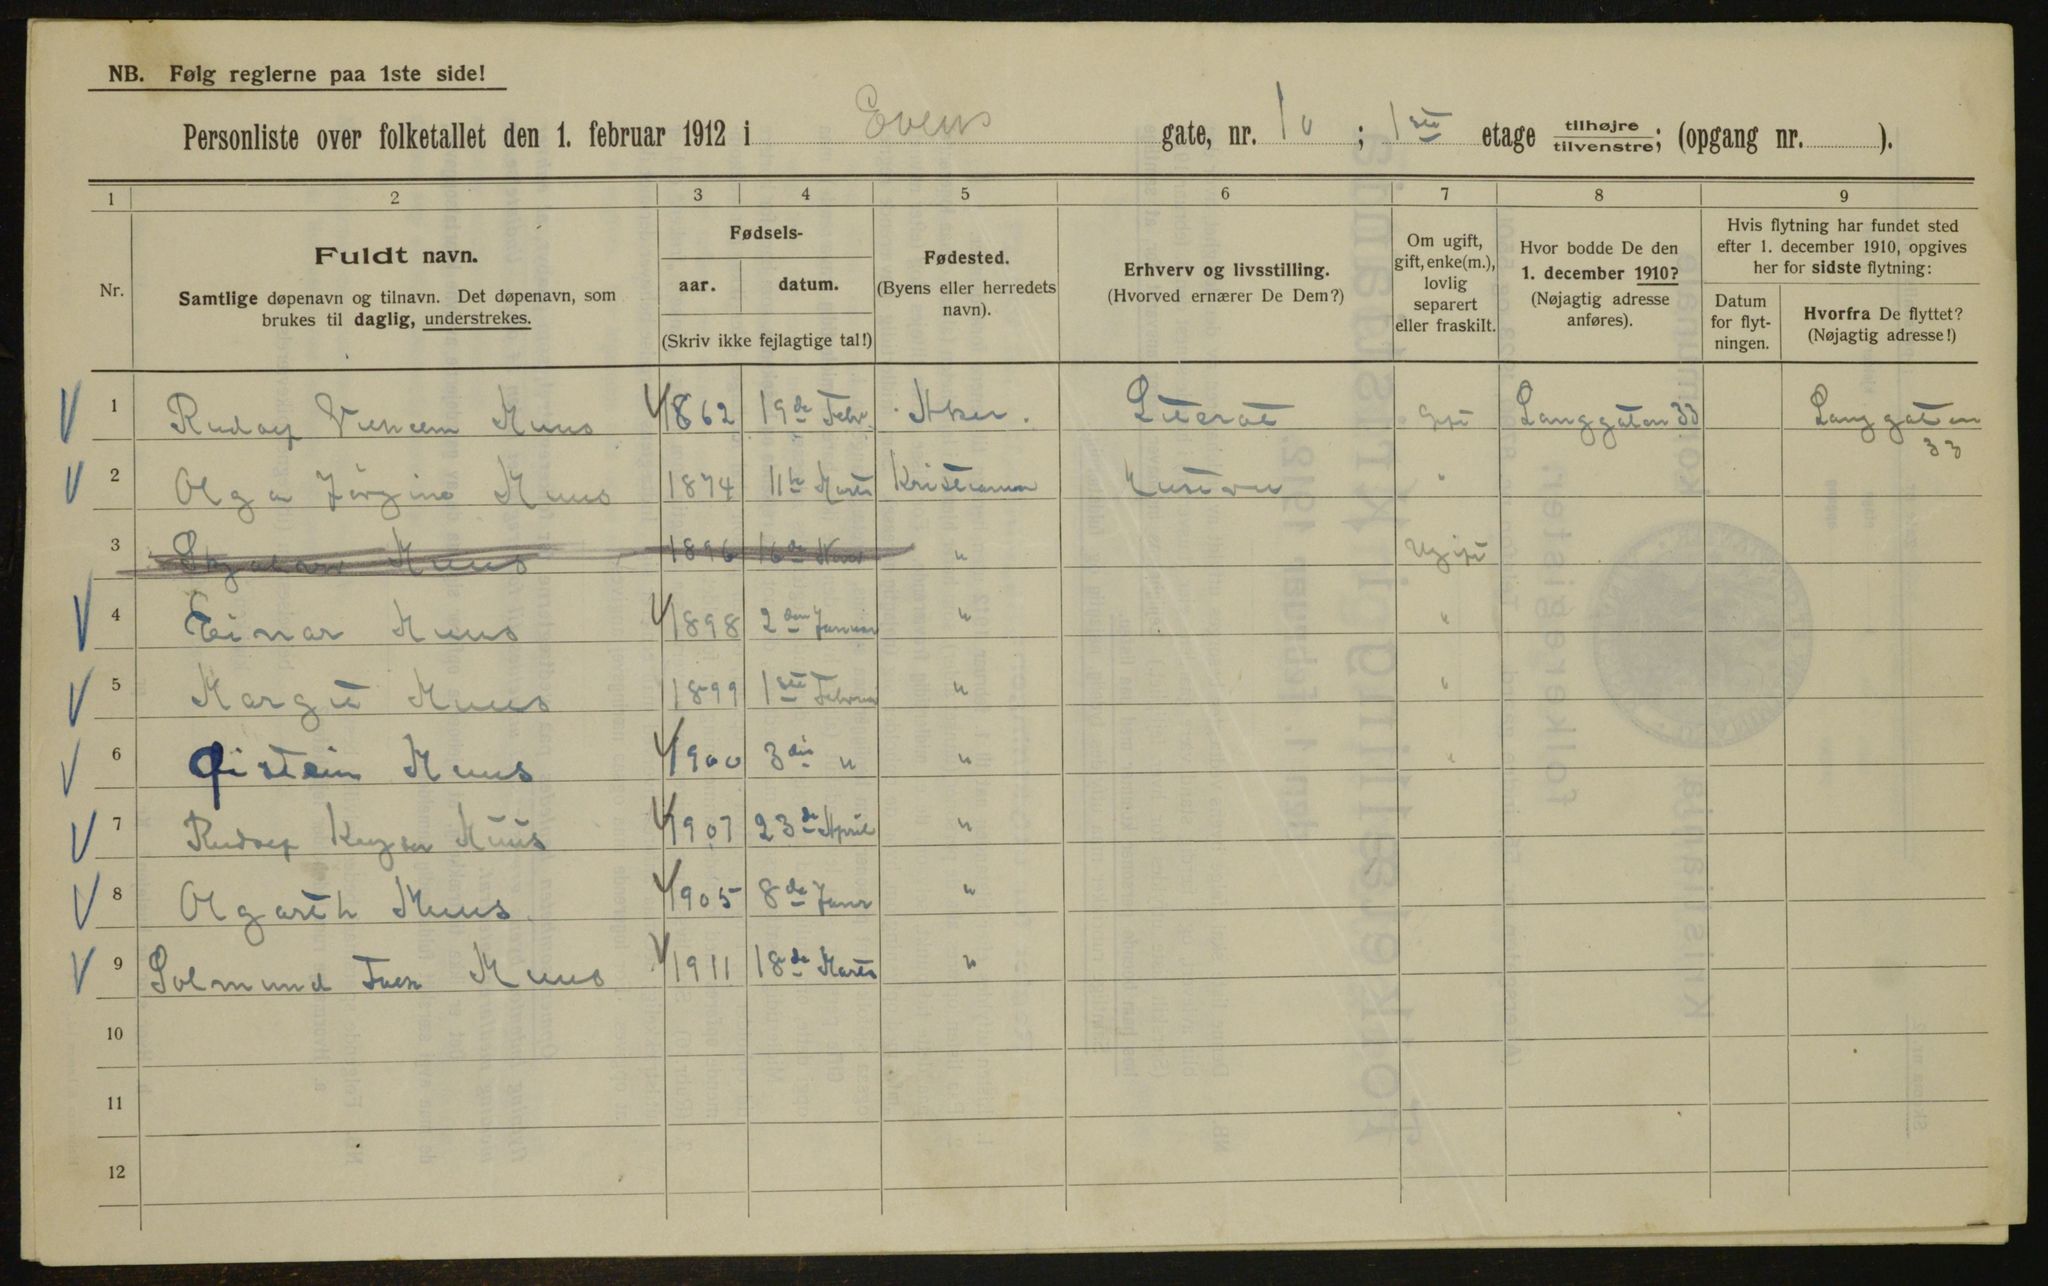 NB. Følg reglerne paa 1ste side!
Personliste over folketallet den 1. februar 1912 i Evens gate, nr. 10; 1ste etage tilhøjre tilvenstre; (opgang nr. ).
1 2 3 4 5 6 7 8 9
Nr.
Fuldt navn.
Samtlige døpenavn og tilnavn. Det døpenavn, som
brukes til daglig, understrekes.
Fødsels-
aar. datum.
(Skriv ikke fejlagtige tal!)
Fødested.
(Byens eller herredets
navn).
Erhverv og livsstilling.
(Hvorved ernærer De Dem?)
Om ugift,
gift, enke(m.),
lovlig
separert
eller fraskilt.
Hvor bodde De den
1. december 1910?
(Nøjagtig adresse
anføres).
Hvis flytning har fundet sted
efter 1. december 1910, opgives
her for sidste flytning:
Datum
for flyt-
ningen.
Hvorfra De flyttet?
(Nøjagtig adresse!)
1 Rudolf Vilhelm Muus 1862 19de Febr. Aker. Literat Gift Langgaten 33 Langgaten
33
2 Olga Jörgine Muus 1874 11te Marts Kristiania Hustru "
3 Muus 1896 16de " Ugift
4 Einar Muus 1898 2den Januar " "
5 Margit Muus 1899 1ste Februar " "
6 Øistein Muus 1900 3die " " "
7 Rudolf Keyser Muus 1907 23de April "
8 Olgarth Muus 1905 8de Janr "
9 Solmund Falk Muus 1911 18de Marts "
10
11
12